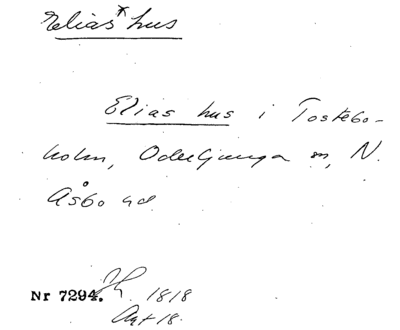 Elias* hus
Elias hus i Tostebo-
holm, Oderljunga sn, N.
Åsbo hd
Nr 7294. 1818
Avt 18.